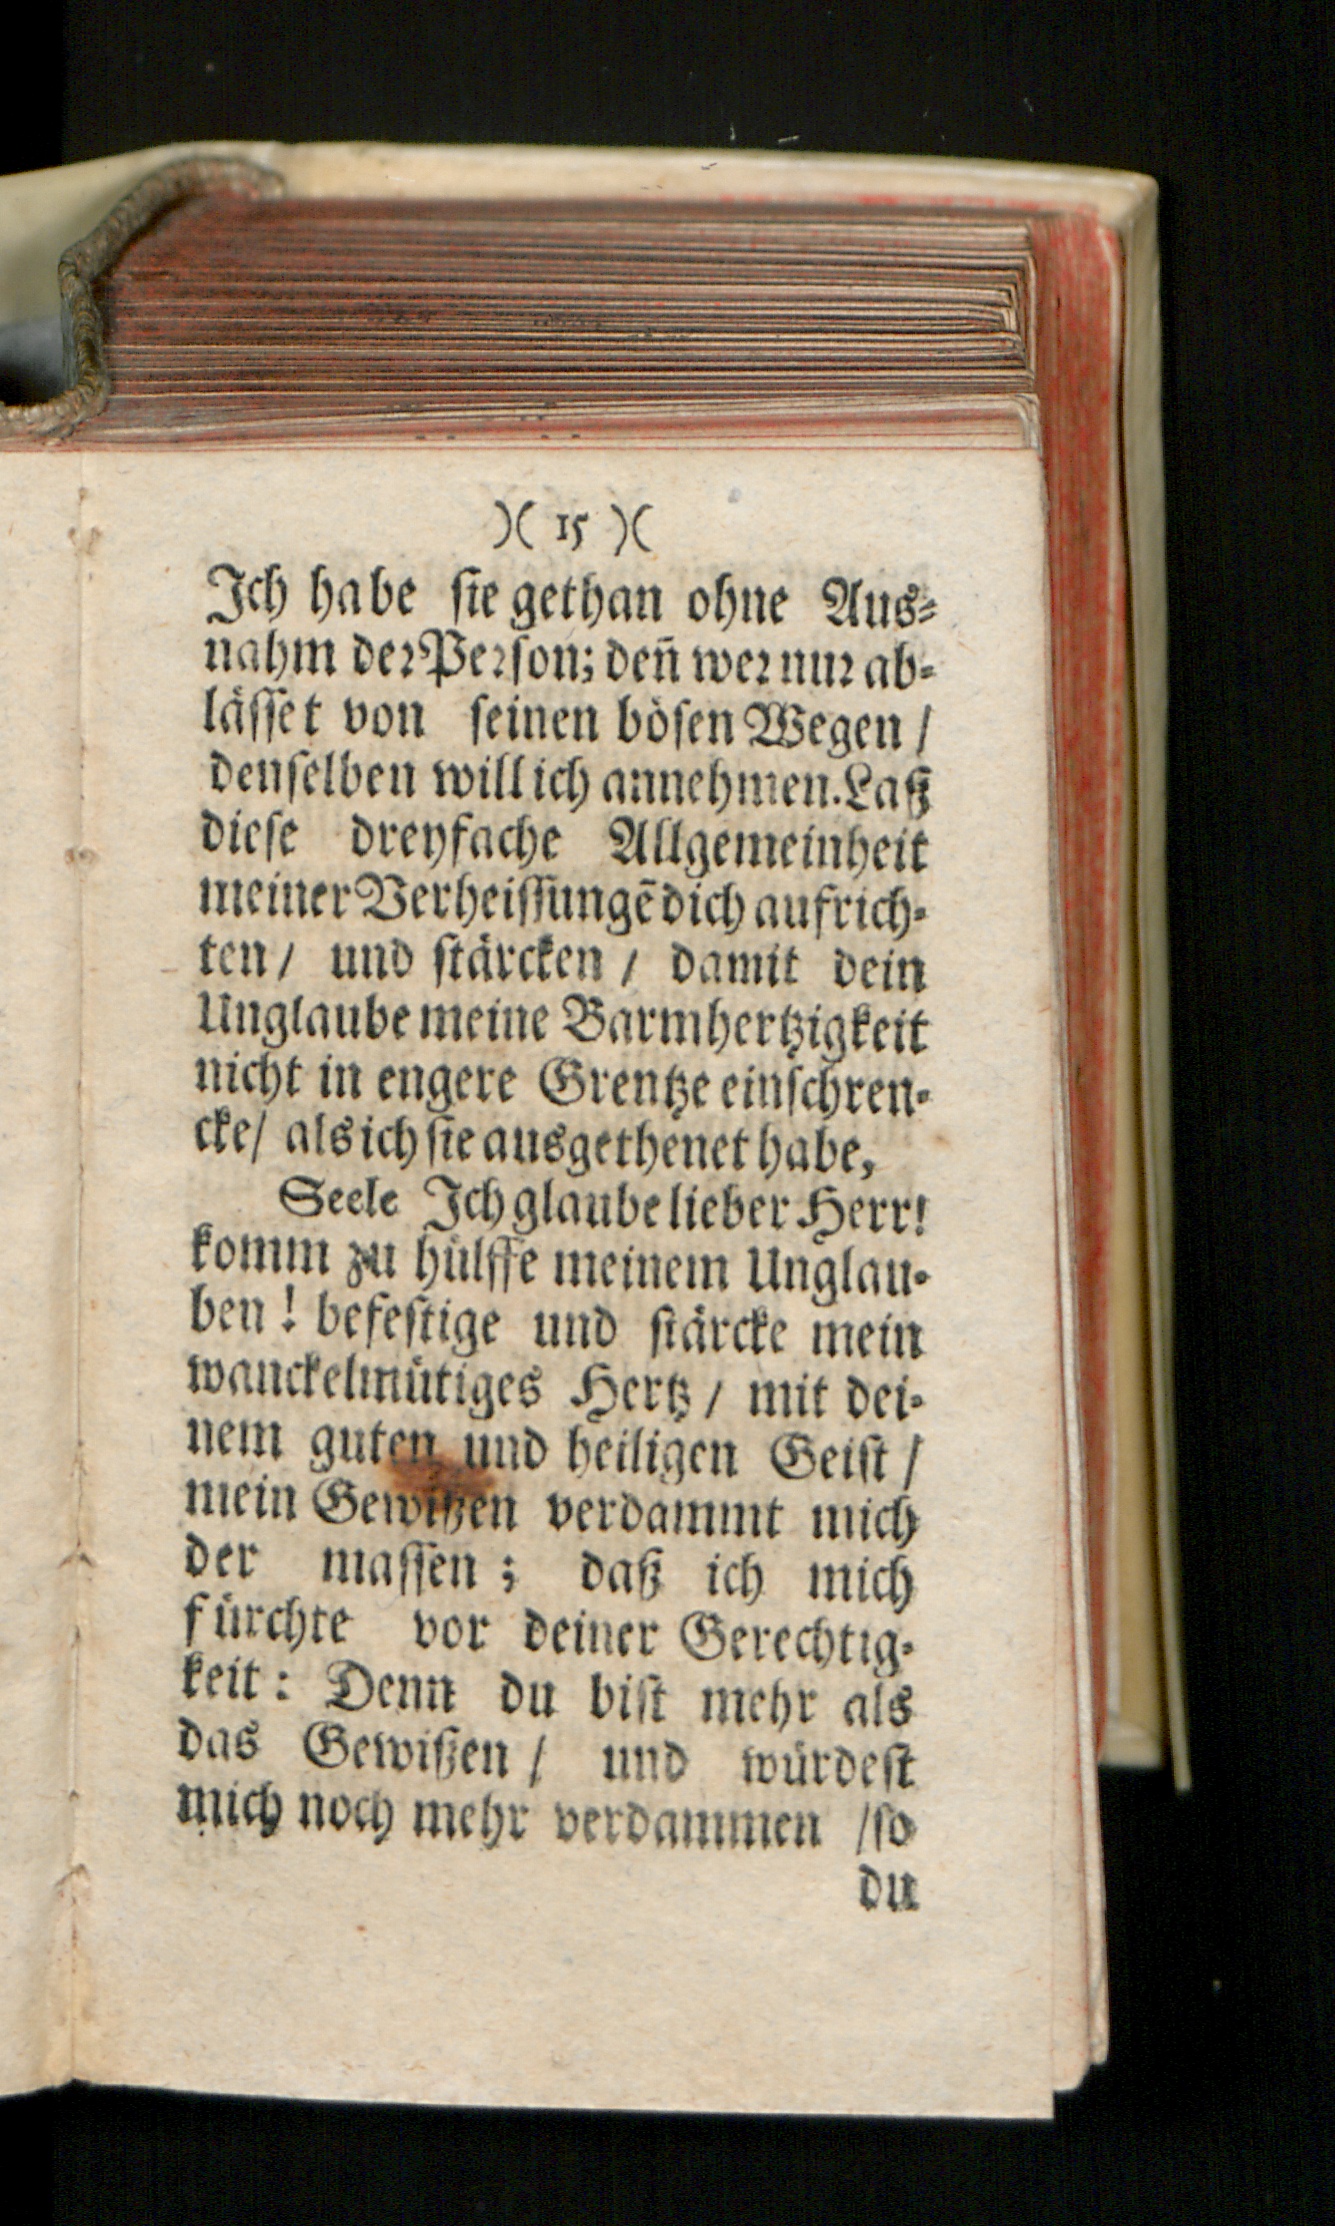 )( 15 )(
Ich habe sie gethan ohne Aus-
nahm der Person; deñ wer nur ab-
lässet von seinen bösen Wegen /
denselben will ich annehmen. Laß
diese dreyfache Allgemeinheit
meiner Verheissungē dich aufrich-
ten / und stärcken / damit dein
Unglaube meine Barmhertzigkeit
nicht in engere Grentze einschren-
cke / als ich sie ausgethenet habe,
Seele Ich glaube lieber Herr!
komm zu hülffe meinem Unglau-
ben! befestige und stärcke mein
wanckelmütiges Hertz / mit dei-
nem guten und heiligen Geist /
mein Gewißen verdammt mich
der massen; daß ich mich
fürchte vor deiner Gerechtig-
keit: Denn du bist mehr als
das Gewißen / und würdest
mich noch mehr verdammen / so
du